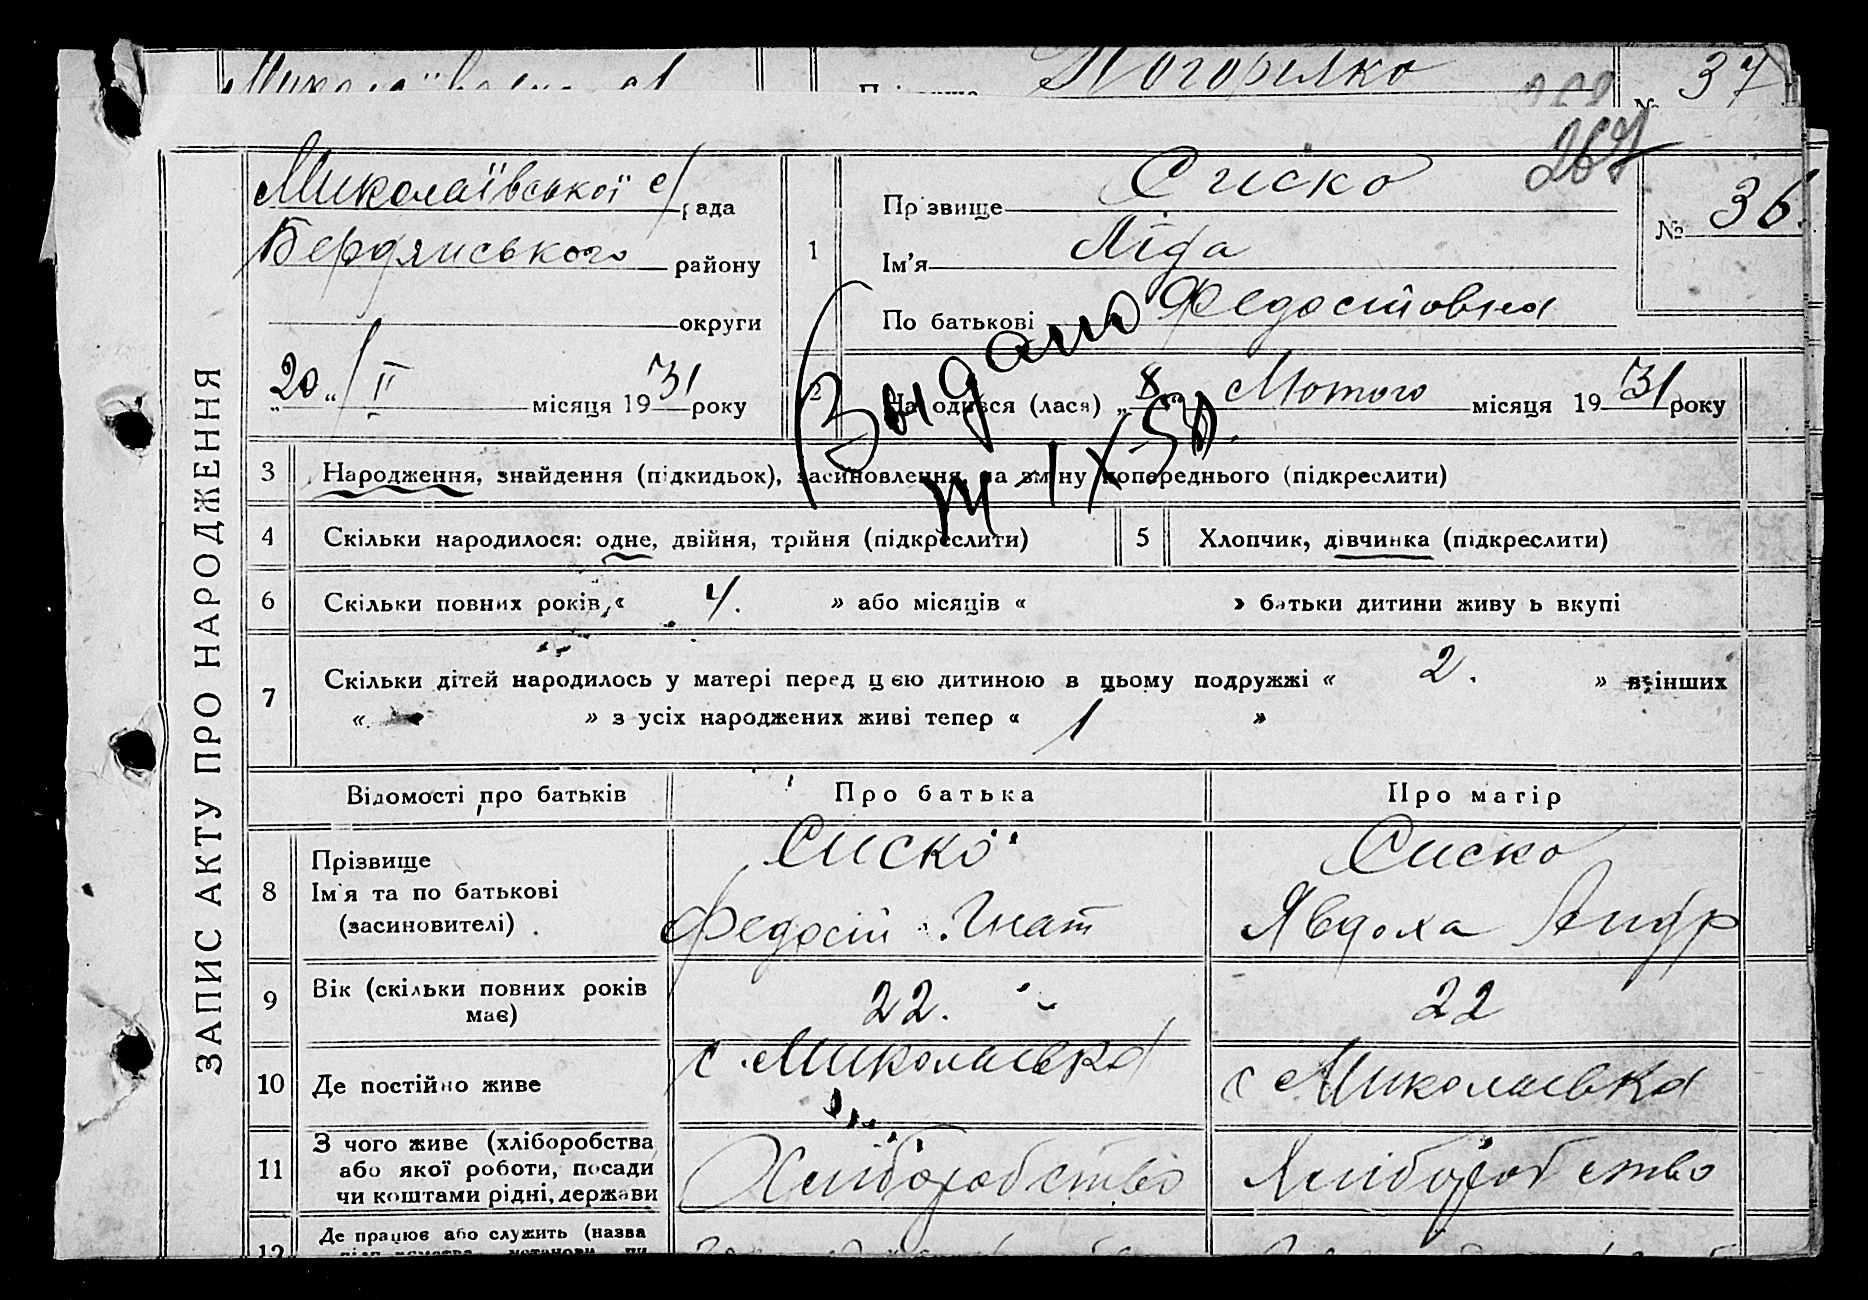 Погорілко
37
267
ЗАПИС АКТУ ПРО НАРОДЖЕННЯ
Миколаївської с/рада
Бердянського району
округи
„20“ / II місяця 1931 року
1
Прізвище Сиско
Ім'я Ліда
По батькові Федостовна
№ 36.
2
Народився (лася) „8“ Лютого місяця 1931 року
3 Народження, знайдення (підкидьок), засиновлення, на зміну попереднього (підкреслити)
4 Скільки народилося: одне, двійня, трійня (підкреслити)
5 Хлопчик, дівчинка (підкреслити)
6 Скільки повних років „ 4. » або місяців « » батьки дитини живуть вкупі
7 Скільки дітей народилось у матері перед цією дитиною в цьому подружжі « 2. » в інших
« » з усіх народжених живі тепер « 1 »
Відомості про батьків Про батька Про матір
8 Прізвище Сиско Сиско
Ім'я та по батькові
(засиновителі) Федосій Гнат Явдоха Андр
9 Вік (скільки повних років має) 22. 22
10 Де постійно живе с. Миколаївка с Миколаївка
11 З чого живе (хліборобства
або якої роботи, посади
чи коштами рідні, держави
Хліборобство Хліборобство
12 Де працює або служить (назва